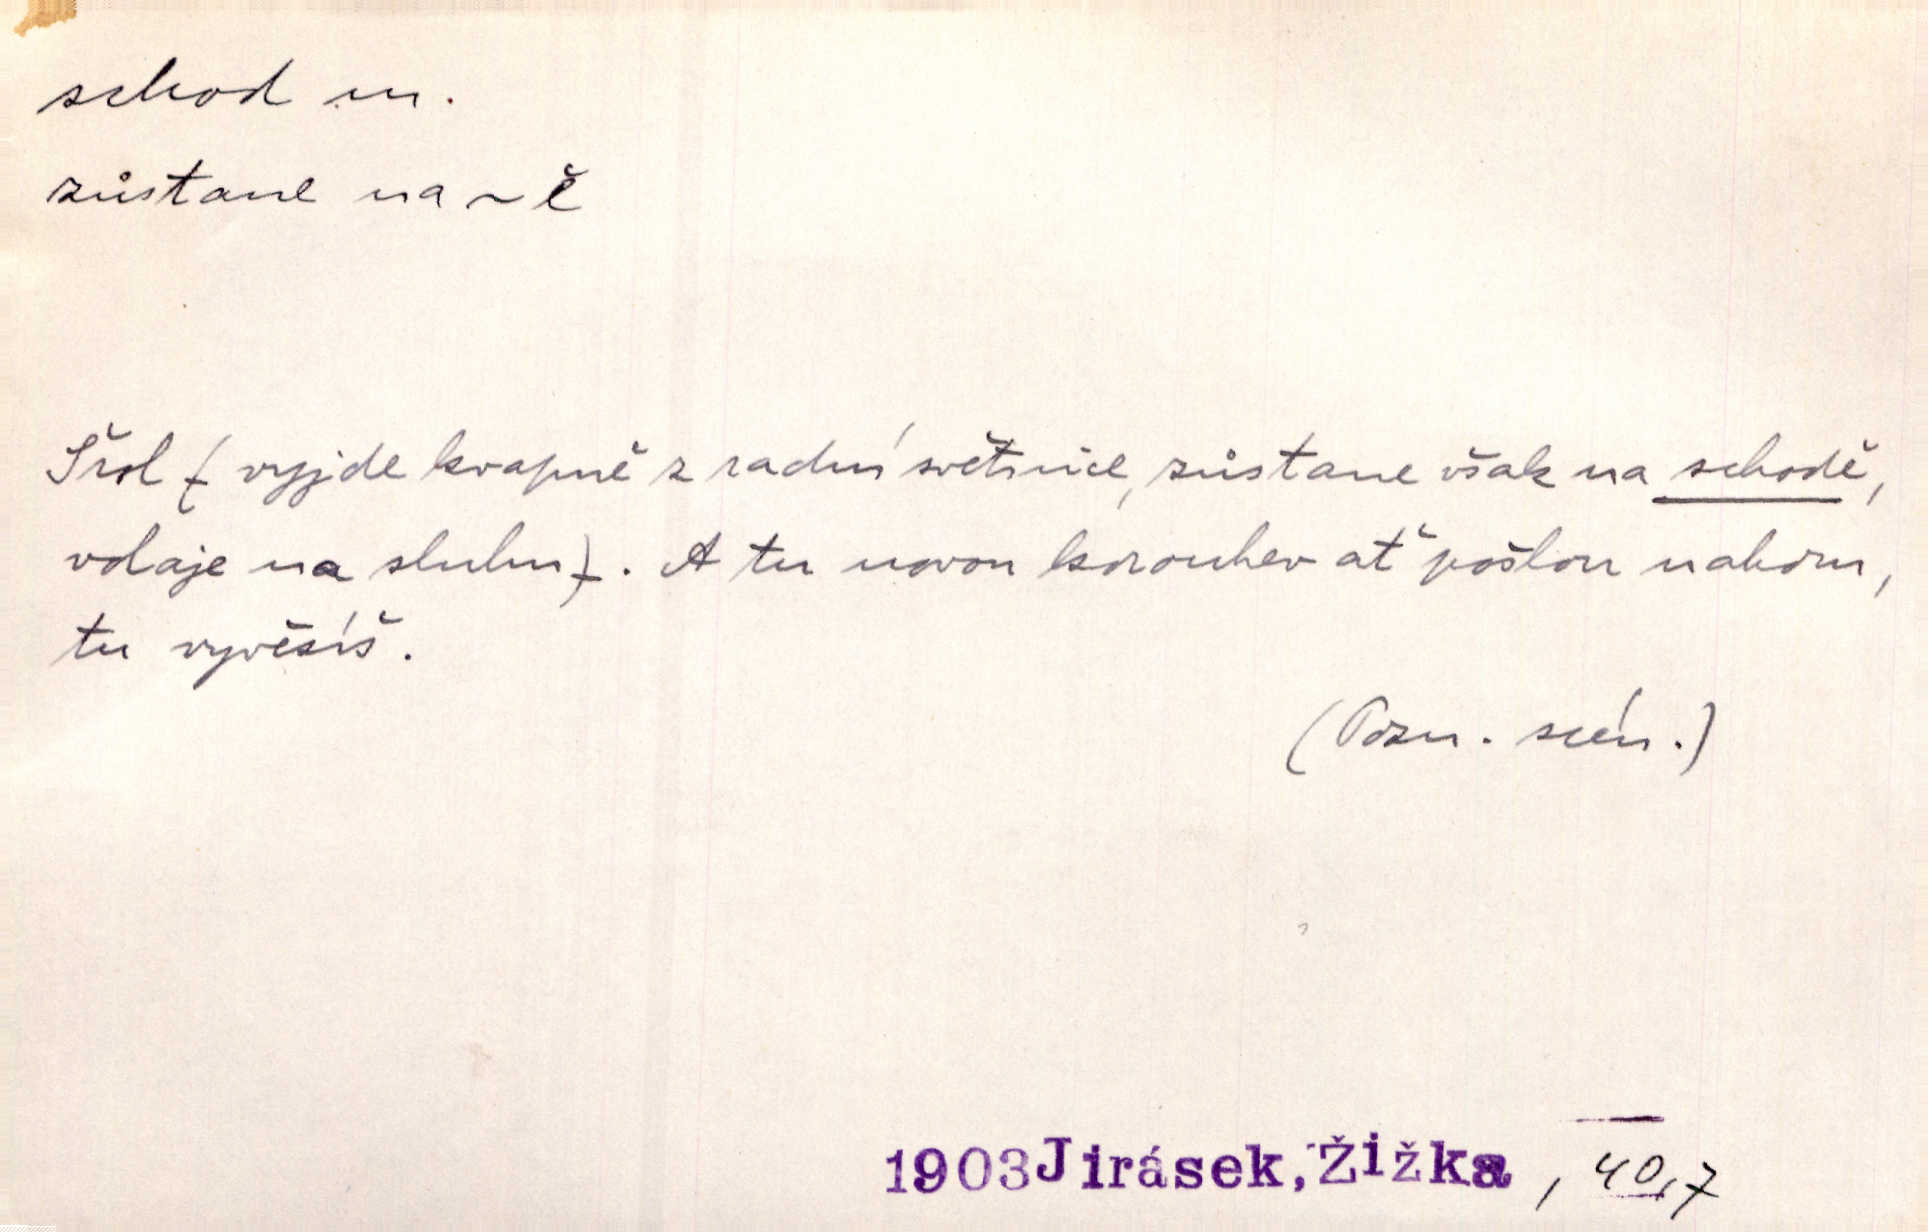 schod m.
zůstane na ~ě
Šrol (vyjde kvapně z radní světnice, zůstane však na schodě,
volaje na sluhu). A tu novou korouhev ať pošlou nahoru,
tu vyvěsíš.
(Pozn. scén.)
1903 Jirásek, Žižka, 40,7